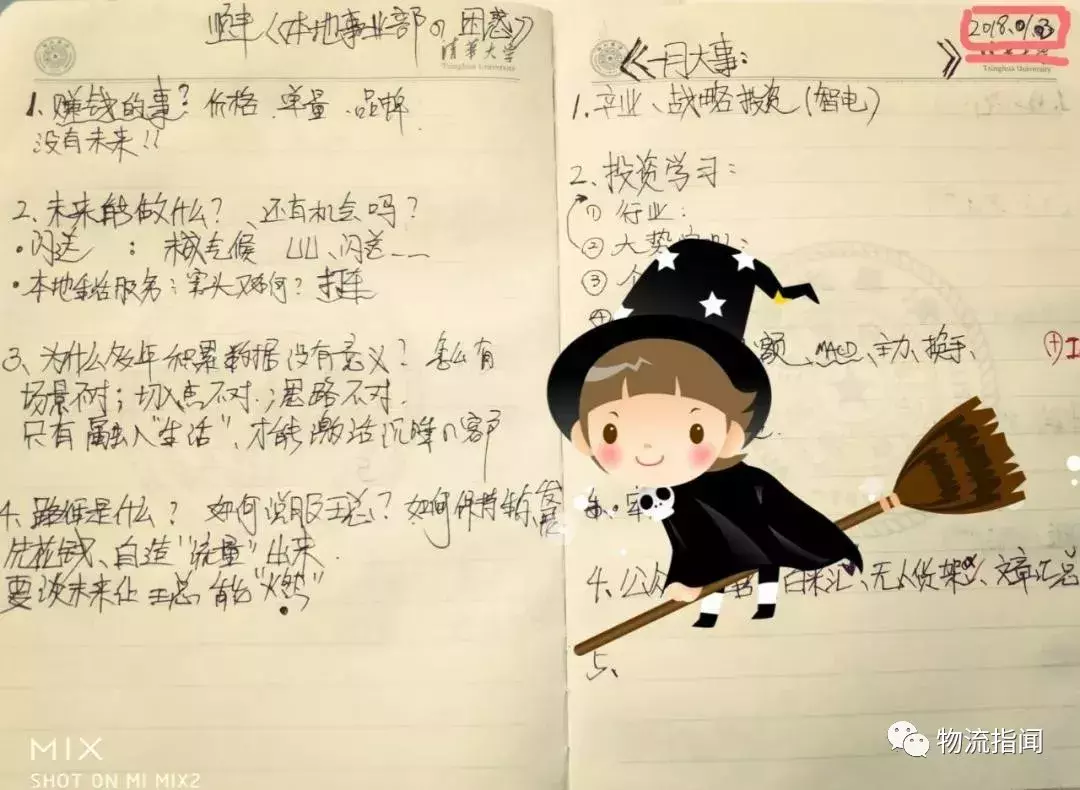 顺丰《本地事业部の困惑》
清华大学
Tsinghua University
1、赚钱的事？价格、单量、品牌
没有未来！！
2、未来能做什么？、还有机会吗？
·闪送 ： 气候 UU、闪送——
·本地生活服务：巨头又如何？
3、为什么多年积累数据没有意义？怎么有
场景不对；切入点不对；思路不对.
只有融入"生活"，才能激活沉睡の客户
4、路径是什么？如何说服王总？如何保持
先花钱、自造"流量"出来.
要谈未来让王总能"燃"
2018.01.03
《一月大事：》
Tsinghua University
1.产业、战略投资（智电）
2、投资学习：
① 行业：
② 大势
③ 个
④
额、MACD、主力、换手、
4、公众 无人货架、文章汇总
5、
MIX
SHOT ON MI MIX2
物流指闻